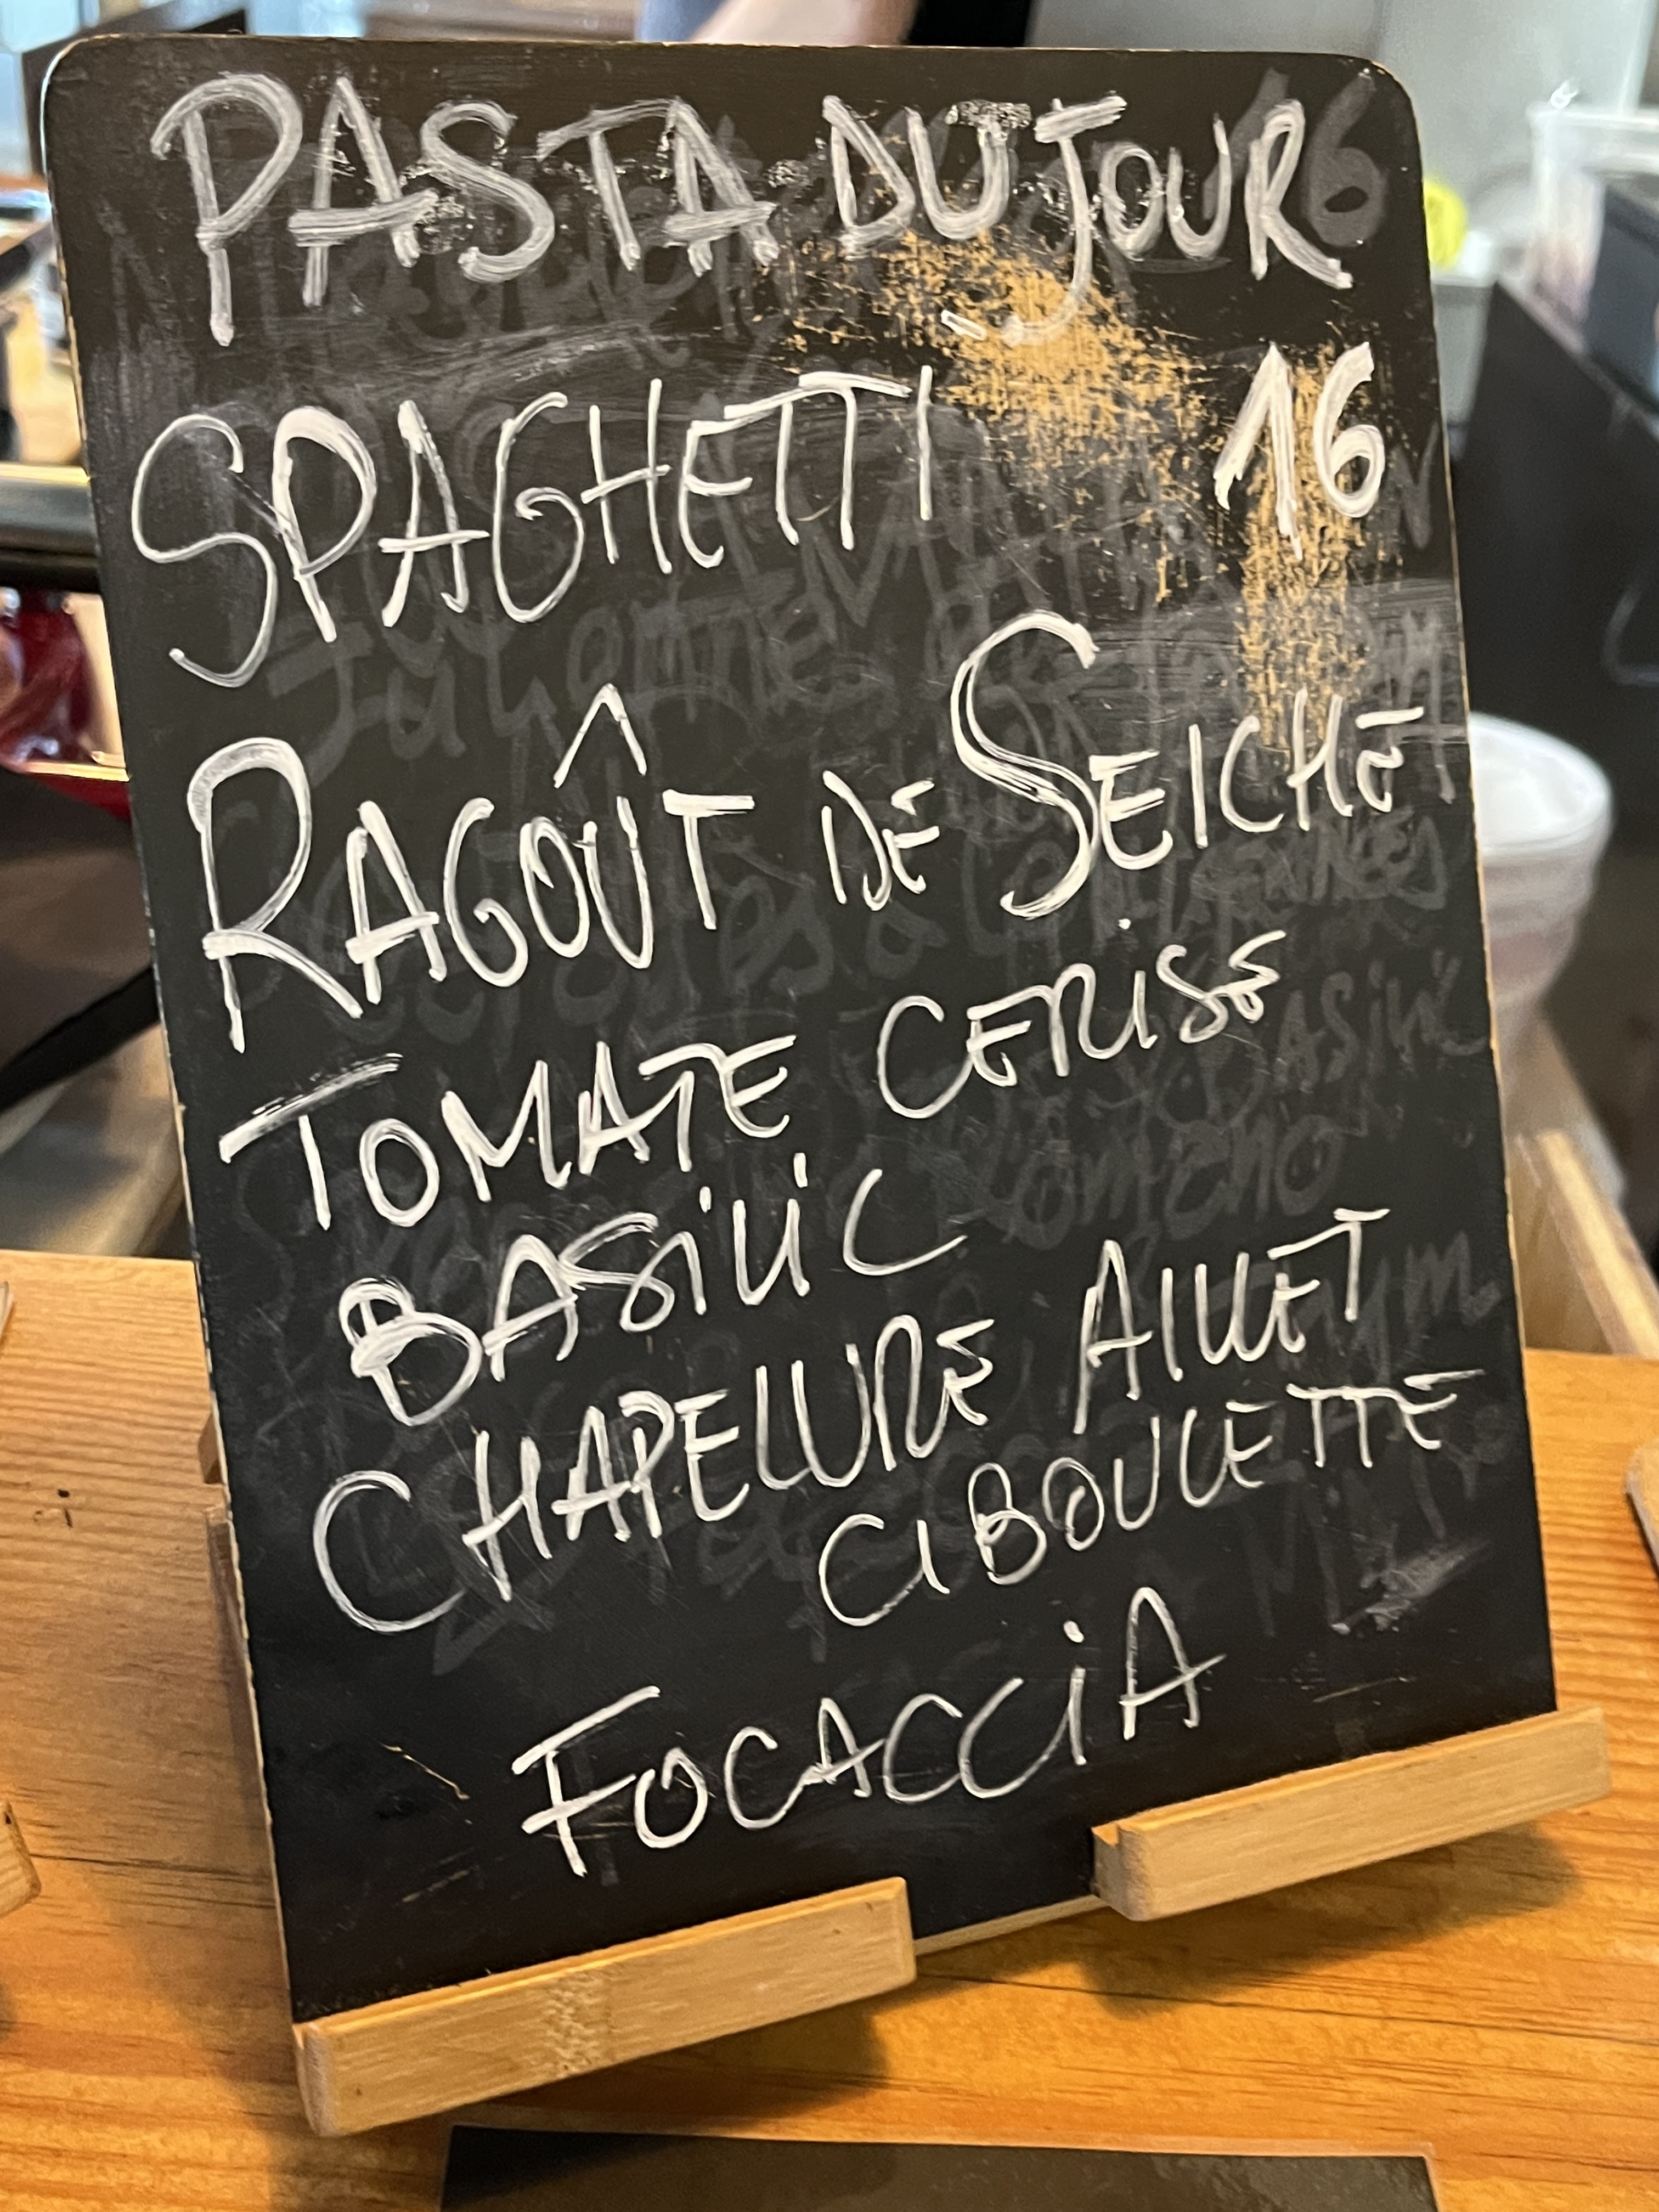 PASTA DU JOUR
SPAGHETTI 16
RAGOÛT DE SEICHE
TOMATE CERISE
BASILIC
CHAPELURE AILLET
CIBOULETTE
FOCACCIA